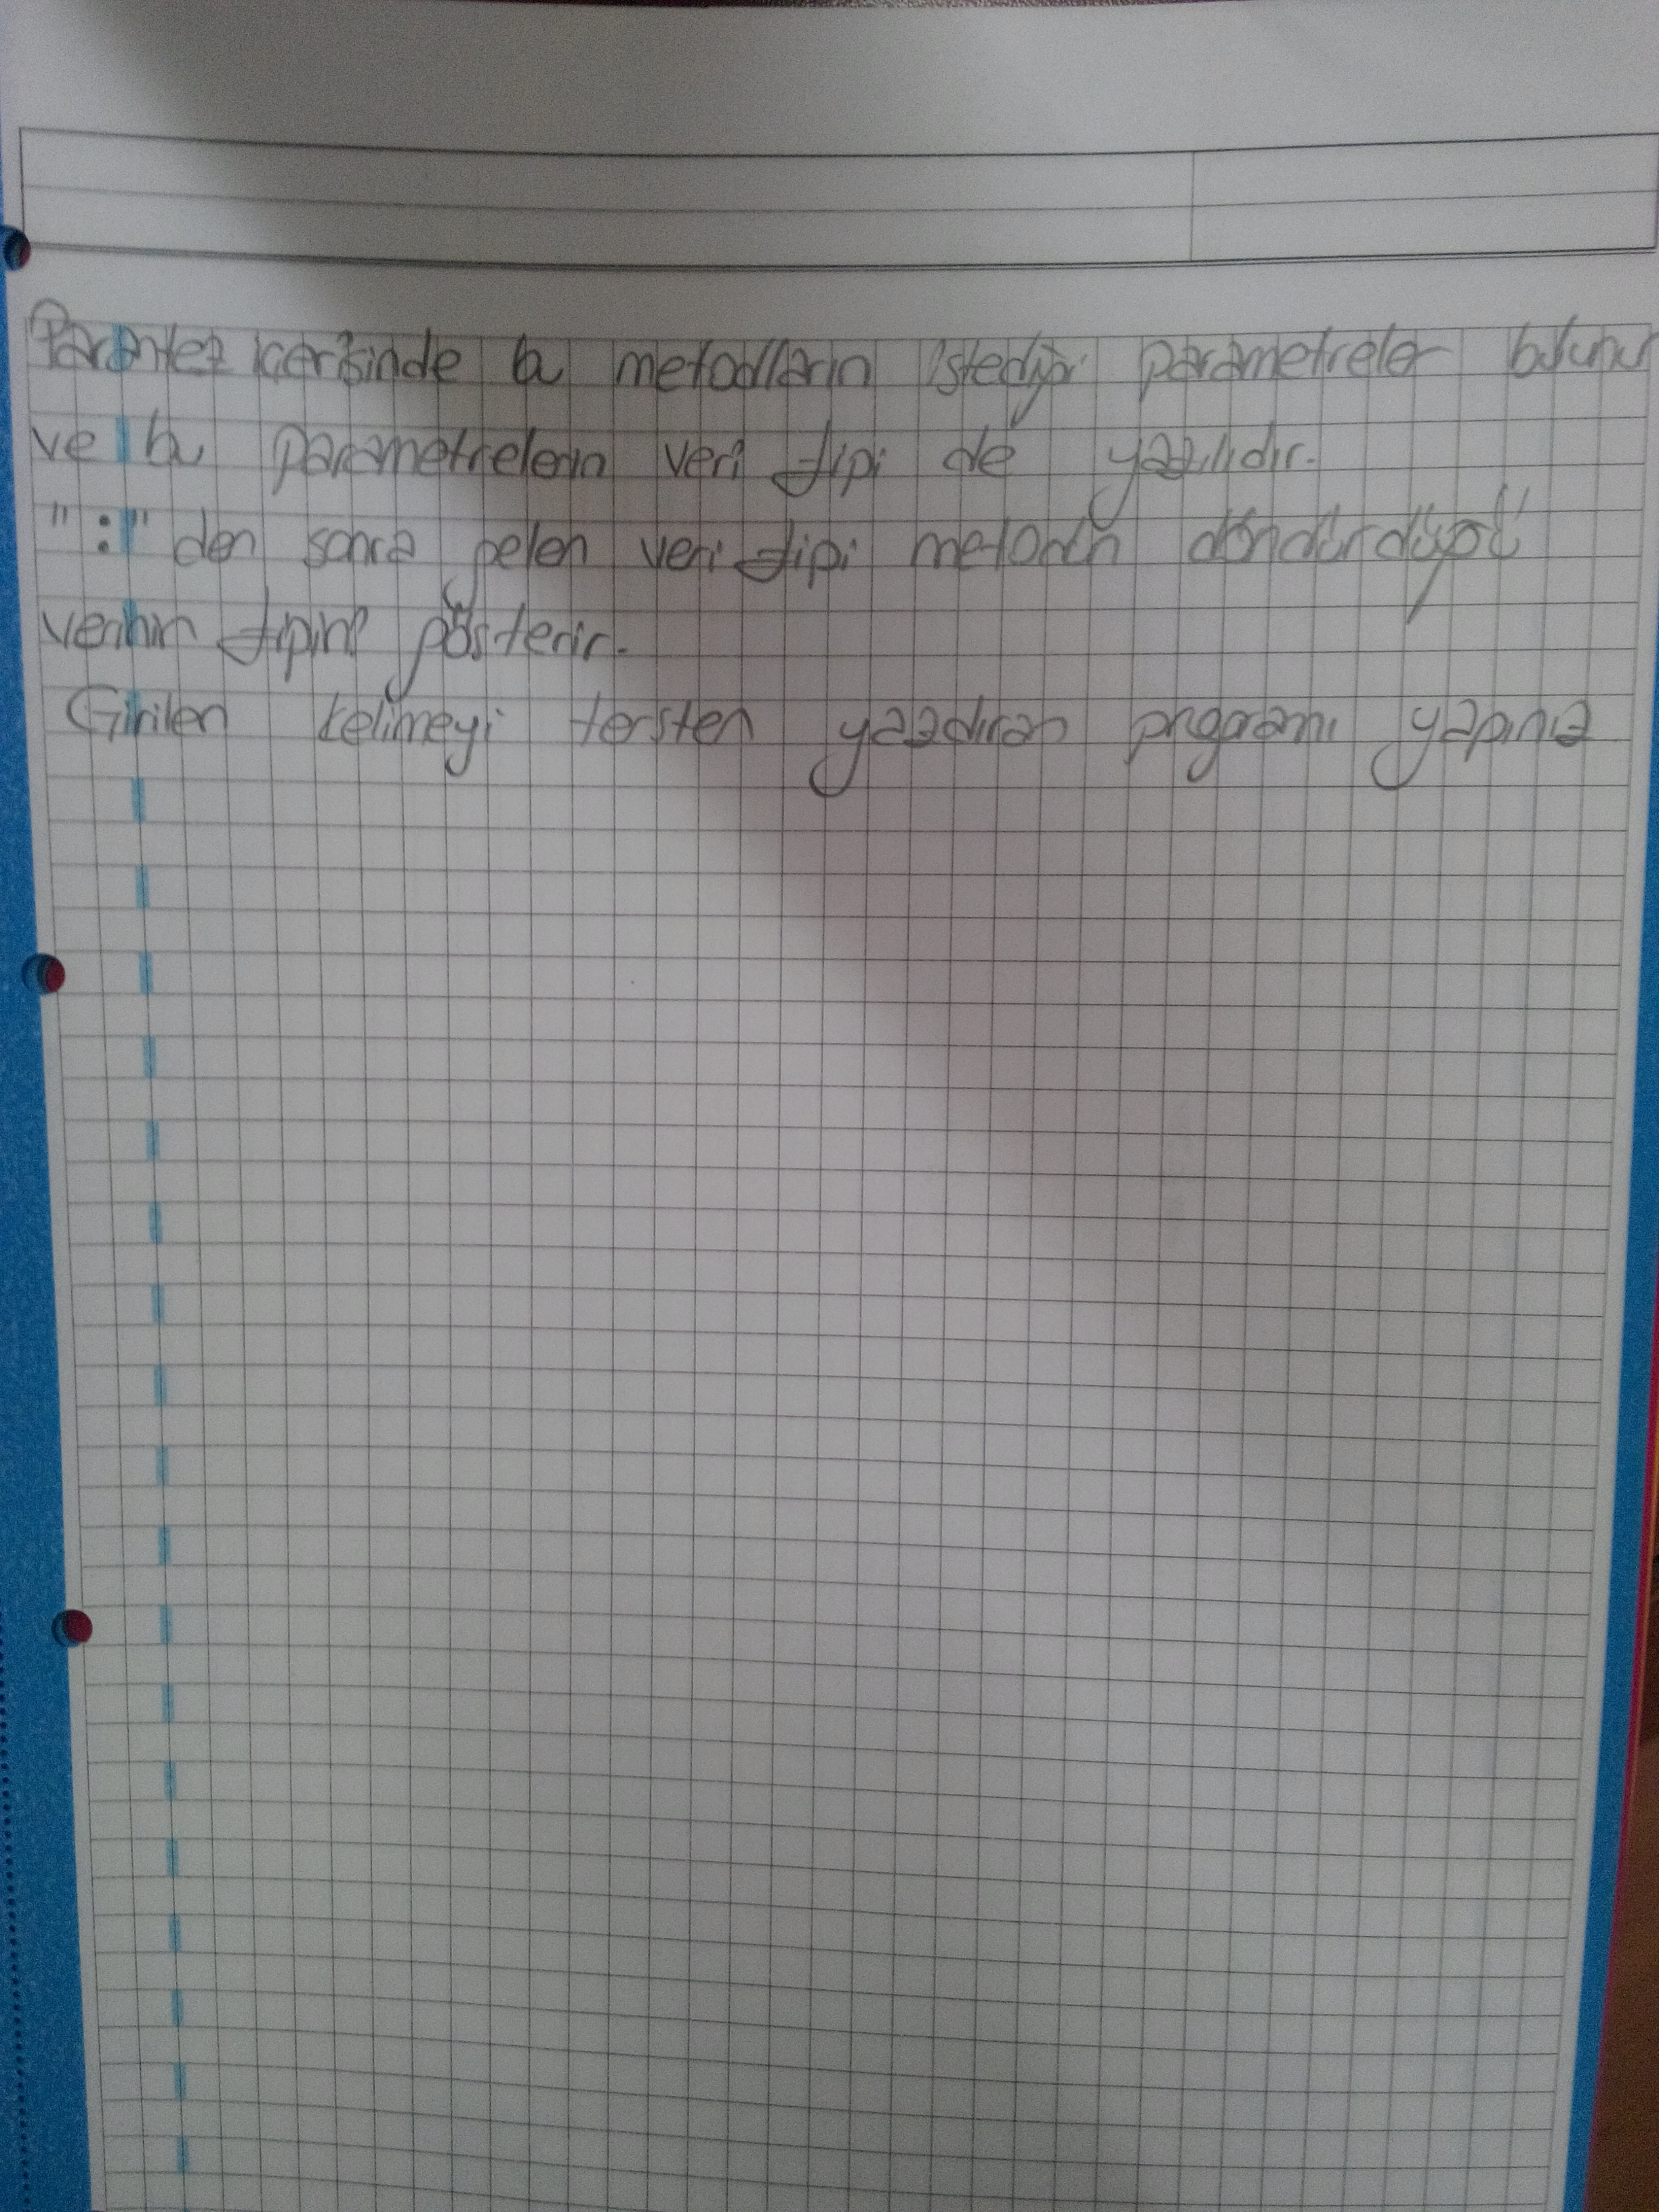 Parantez içerisinde bu metodların istediği parametreler bulunur
ve bu parametrelerin veri tipi de yazılıdır.
":" den sonra gelen veri tipi metodun döndürdüğü
verinin tipini gösterir.
Girilen kelimeyi tersten yazdıran programı yapınız